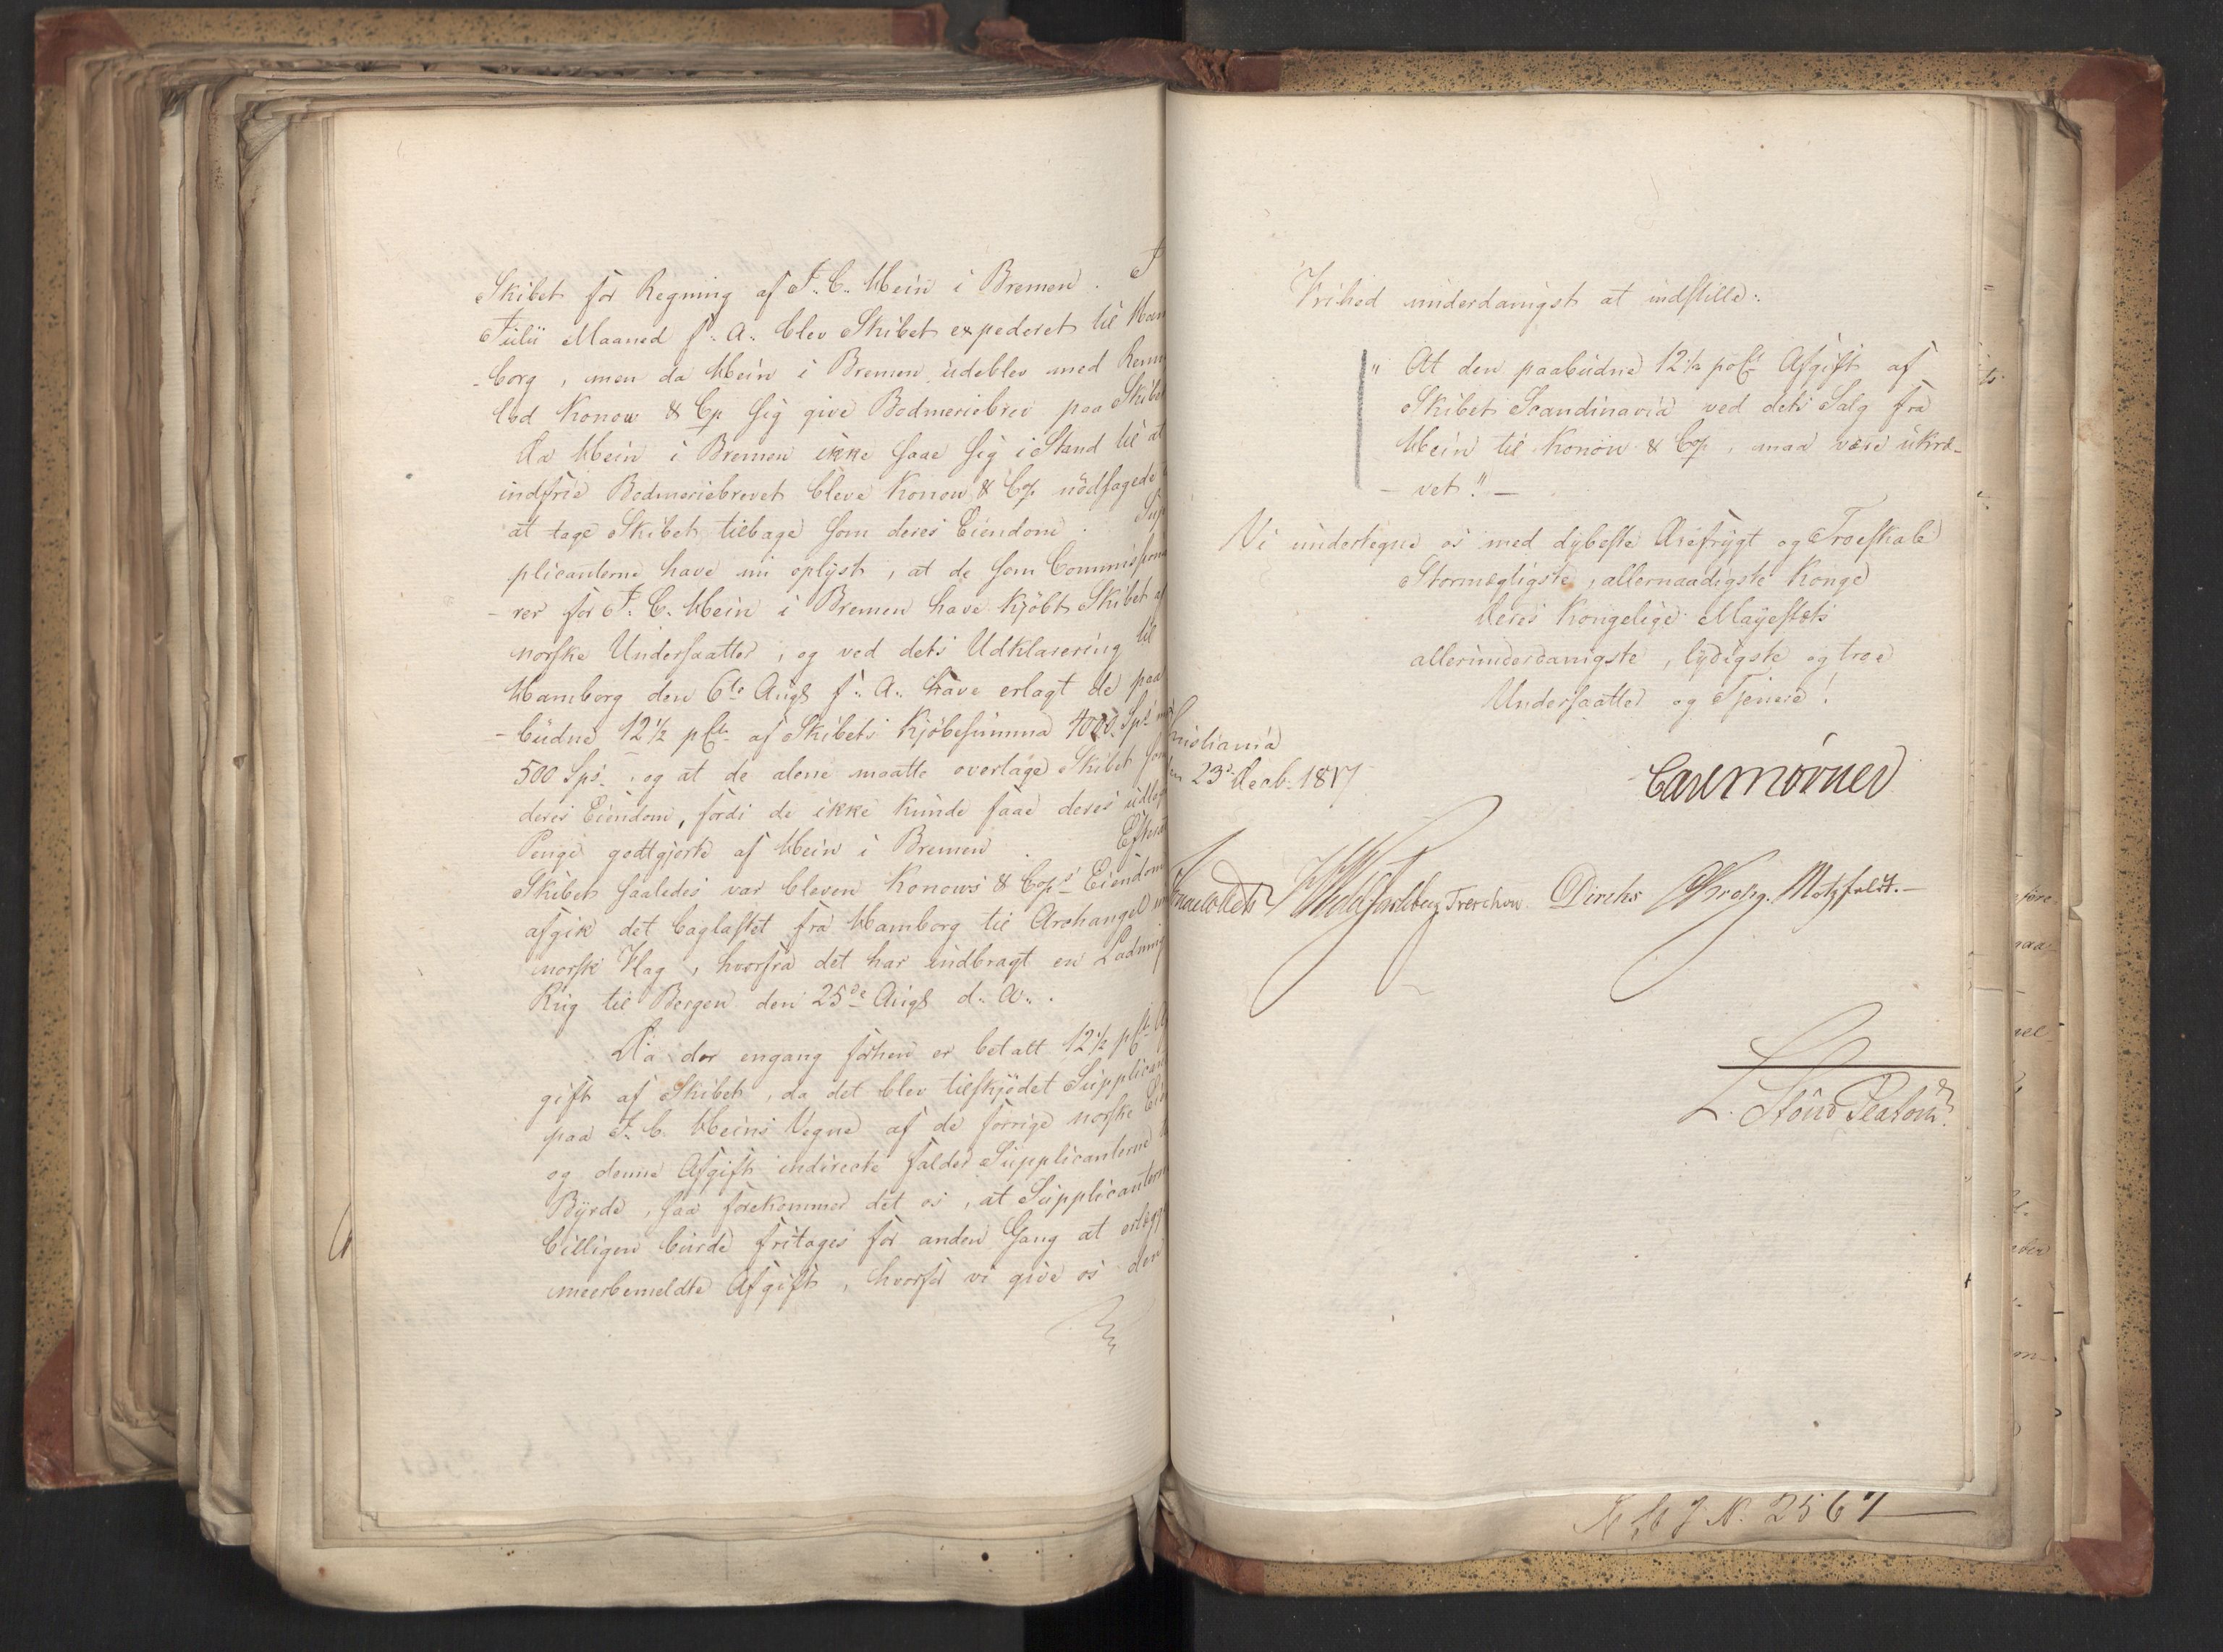 Skibet for Regning af J. C. Hein i Bremen. I
Julii Maaned f. A. blev Skibet expederet til Ham
-borg, men da Hein i Bremen udeblev med Remi
lod Konow & Cp sig give Bodmeriebrev paa Skibet
Da Hein i Bremen ikke saae sig i Stand til at
indfrie Bodmeriebrevet bleve Konow & Co/. nödsagede
at tage Skibet tilbage som deres Eiendom. Sup
plicanterne have nu oplyst, at de som Commissjonai
-rer for J. C. Hein i Bremen have kjöbt Skibet af
norske Undersaatter, og ved dets Udklarering til
Hamborg den 6te Augs f. A. have erlagt de paa
-budne 12½ pCt. af Skibets Kjöbesumma 4000 Sps med
500 Sps., og at de alene maatte overtage Skibet som
deres Eiendom, fordi de ikke kunde faae deres udlagte
Penge godtgjorte af Hein i Bremen. Efterat
Skibet saaledes var bleven Konows & Cops Eiendom
afgik det baglastet fra Hamborg til Archangel
norsk Flag, hvorfra det har indbragt en Ladning
Rug til Bergen den 25de Augs d. A.
Da der engang forhen er betalt 12½ pCt. Af
gift af Skibet, da det blev tilskjödet Supplican
paa J. C. Heins Vegne af de forrige norske Ei
og denne Afgift indirecte falder Supplicanterne til
Byrde, saa forekommer det os, at Supplicanterne
billigen burde fritages for anden Gang at erlægge
meerbemeldte Afgift, hvorfor vi give os den
Frihed underdanigst at indstille:
"At den paabudne 12½ poCt Afgift af
Skibet Scandinavia ved dets Salg fra
Hein til Konow & Cop, maa være ukræ-
- vet!" -
Vi undertegne os med dybeste Ærefrygt og Troeskab
Stormægtigste, allernaadigste Konge
Deres Kongelige Mayestæts
allerunderdanigste, lydigste og troe
Undersaatter og Tjenere!
Christiania
den 23d Decb. 1817
Carl Mörner
Sommerhielm Collett Fasting Treschow Diriks Krohg. Motzfeldt.
L. Stoud Platou
No. 2567